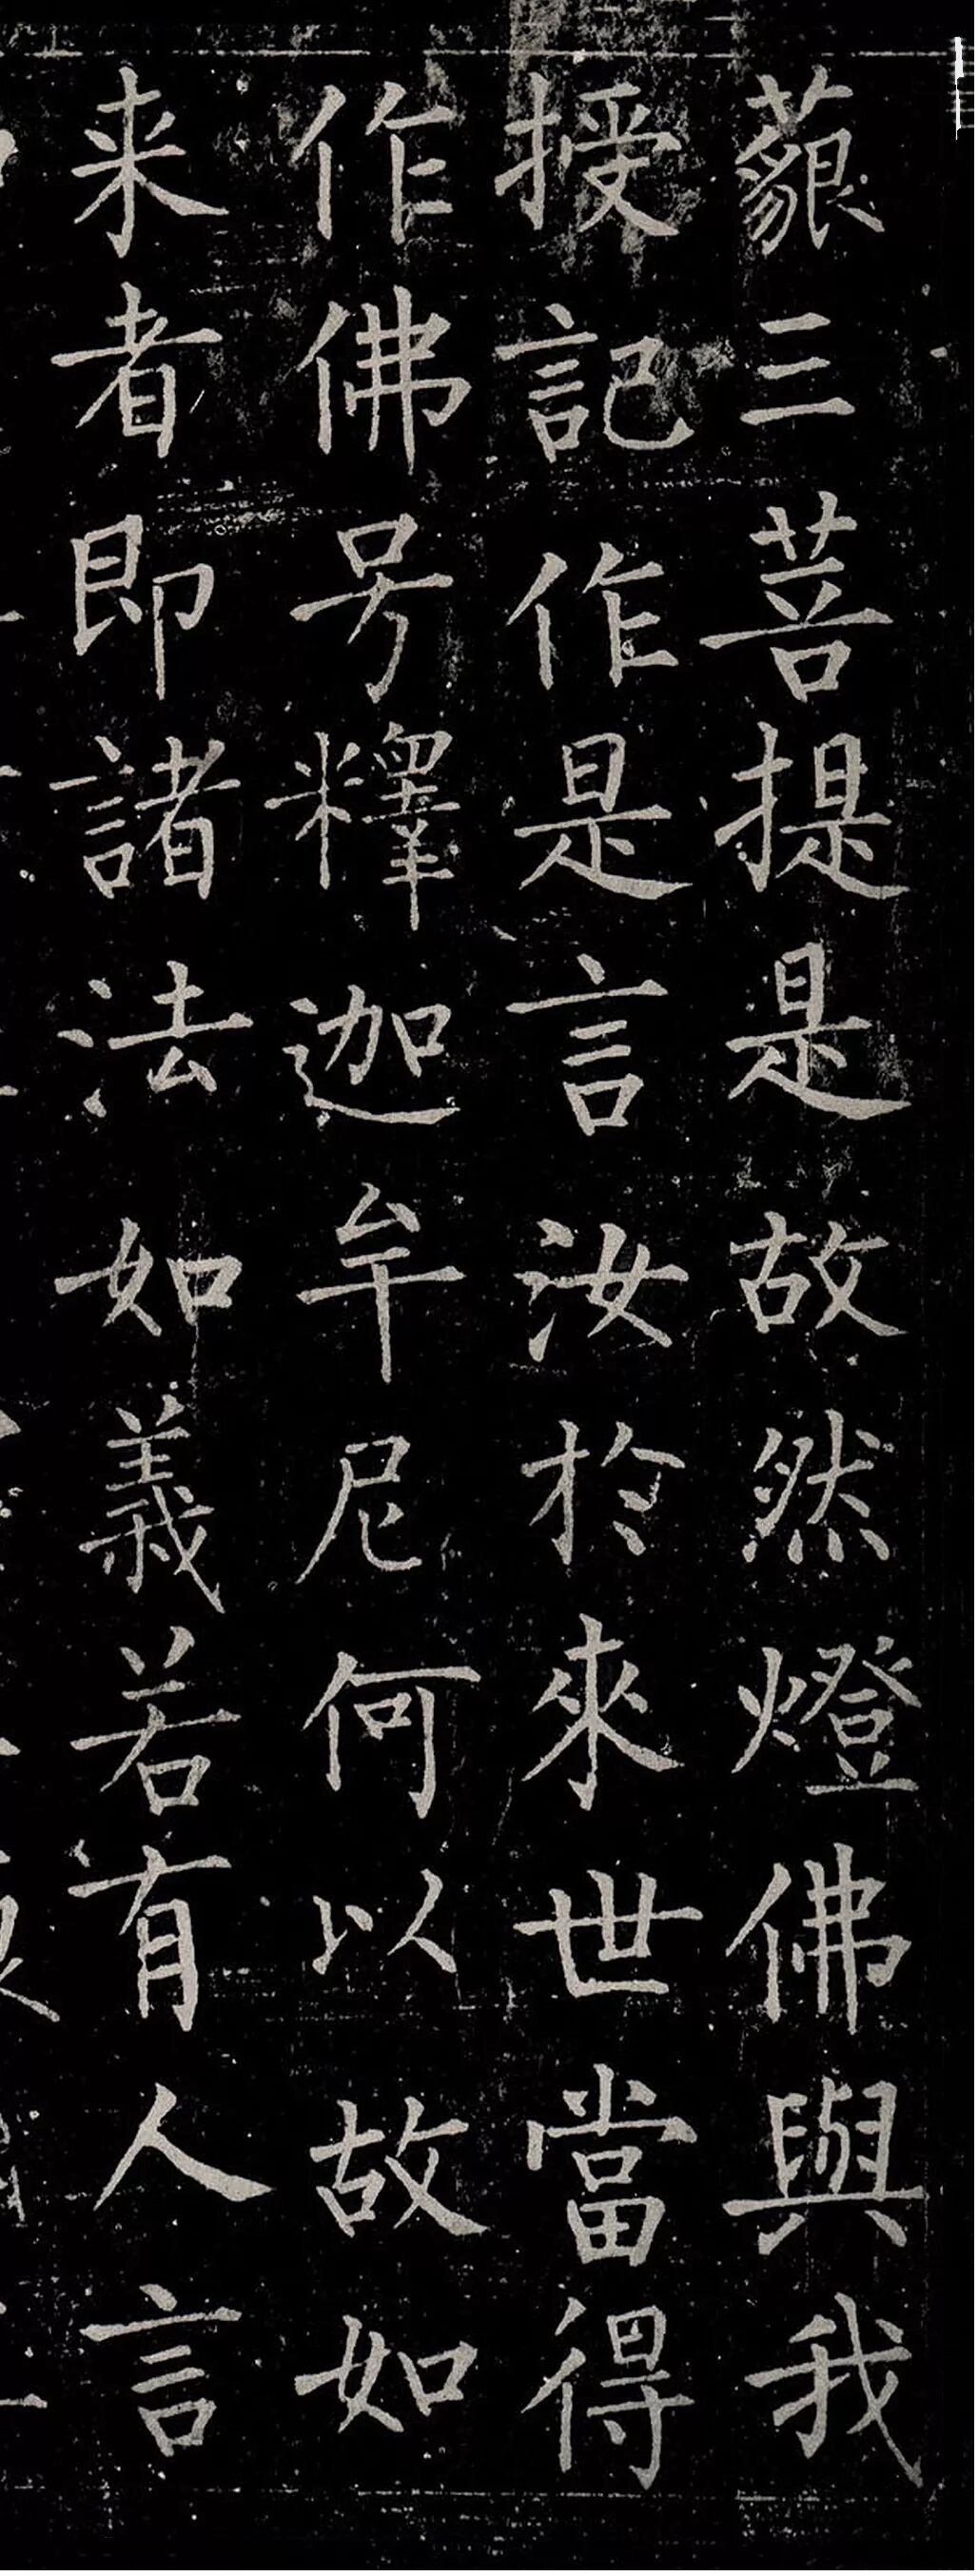 藐三菩提是故然燈佛與我
授記作是言汝於來世當得
作佛号釋迦牟尼何以故如
来者即諸法如義若有人言